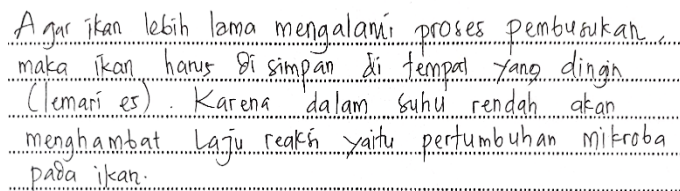 Agar ikan lebih lama mengalami proses pembusukan,
maka ikan harus di simpan di tempat yang dingin
(lemari es). Karena dalam suhu rendah akan
menghambat Laju reaksi yaitu pertumbuhan mikroba
pada ikan.